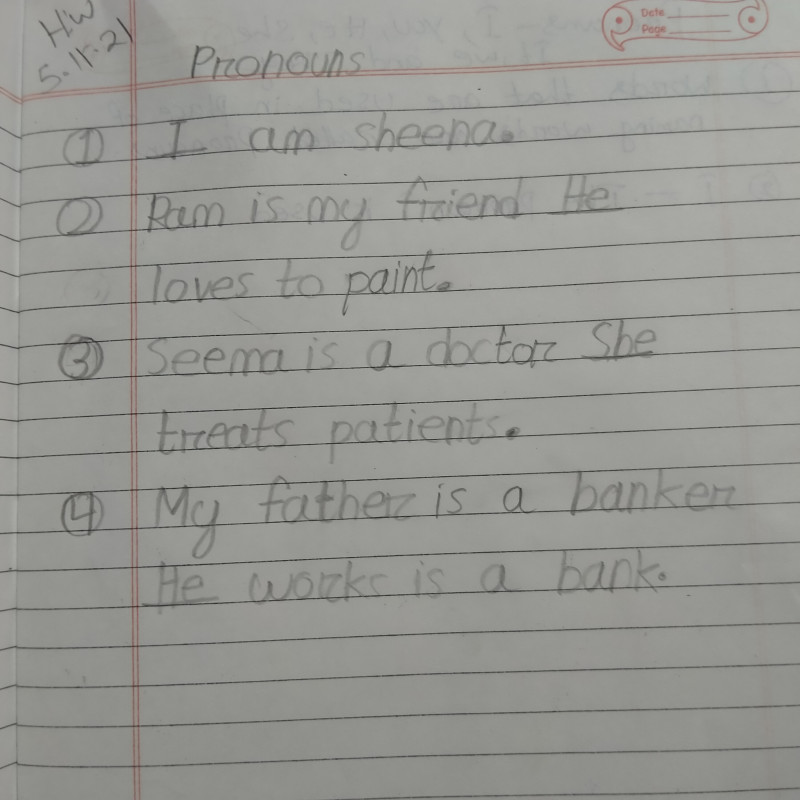 H/W
5.11.21
Date
Page
Pronouns
① I am sheena.
② Ram is my friend He
loves to paint.
③ Seema is a doctor She
treats patients.
④ My father is a banker
He works is a bank.